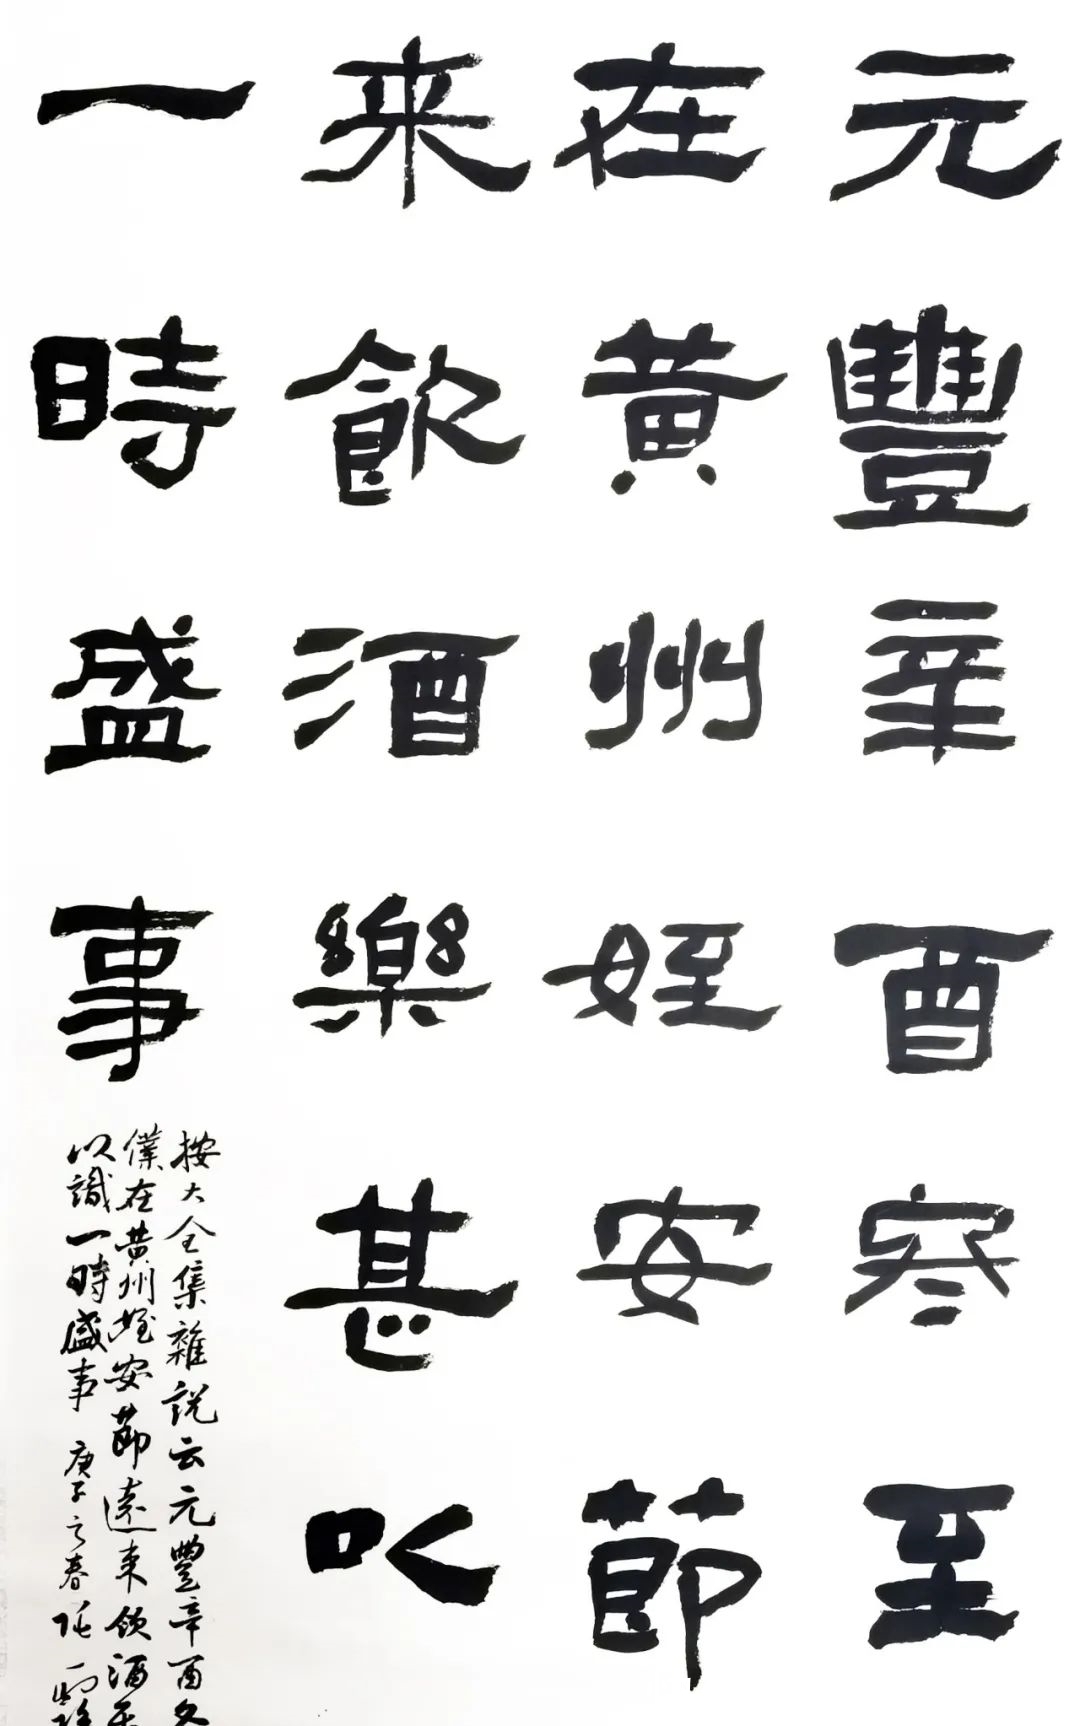 元豐辛酉寒至
在黄州姪安節
来飲酒樂甚以
一時盛事
按大全集雜説云元豐辛酉冬
僕在黄州姪安節遠来飲酒樂
以識一時盛事 庚子之春